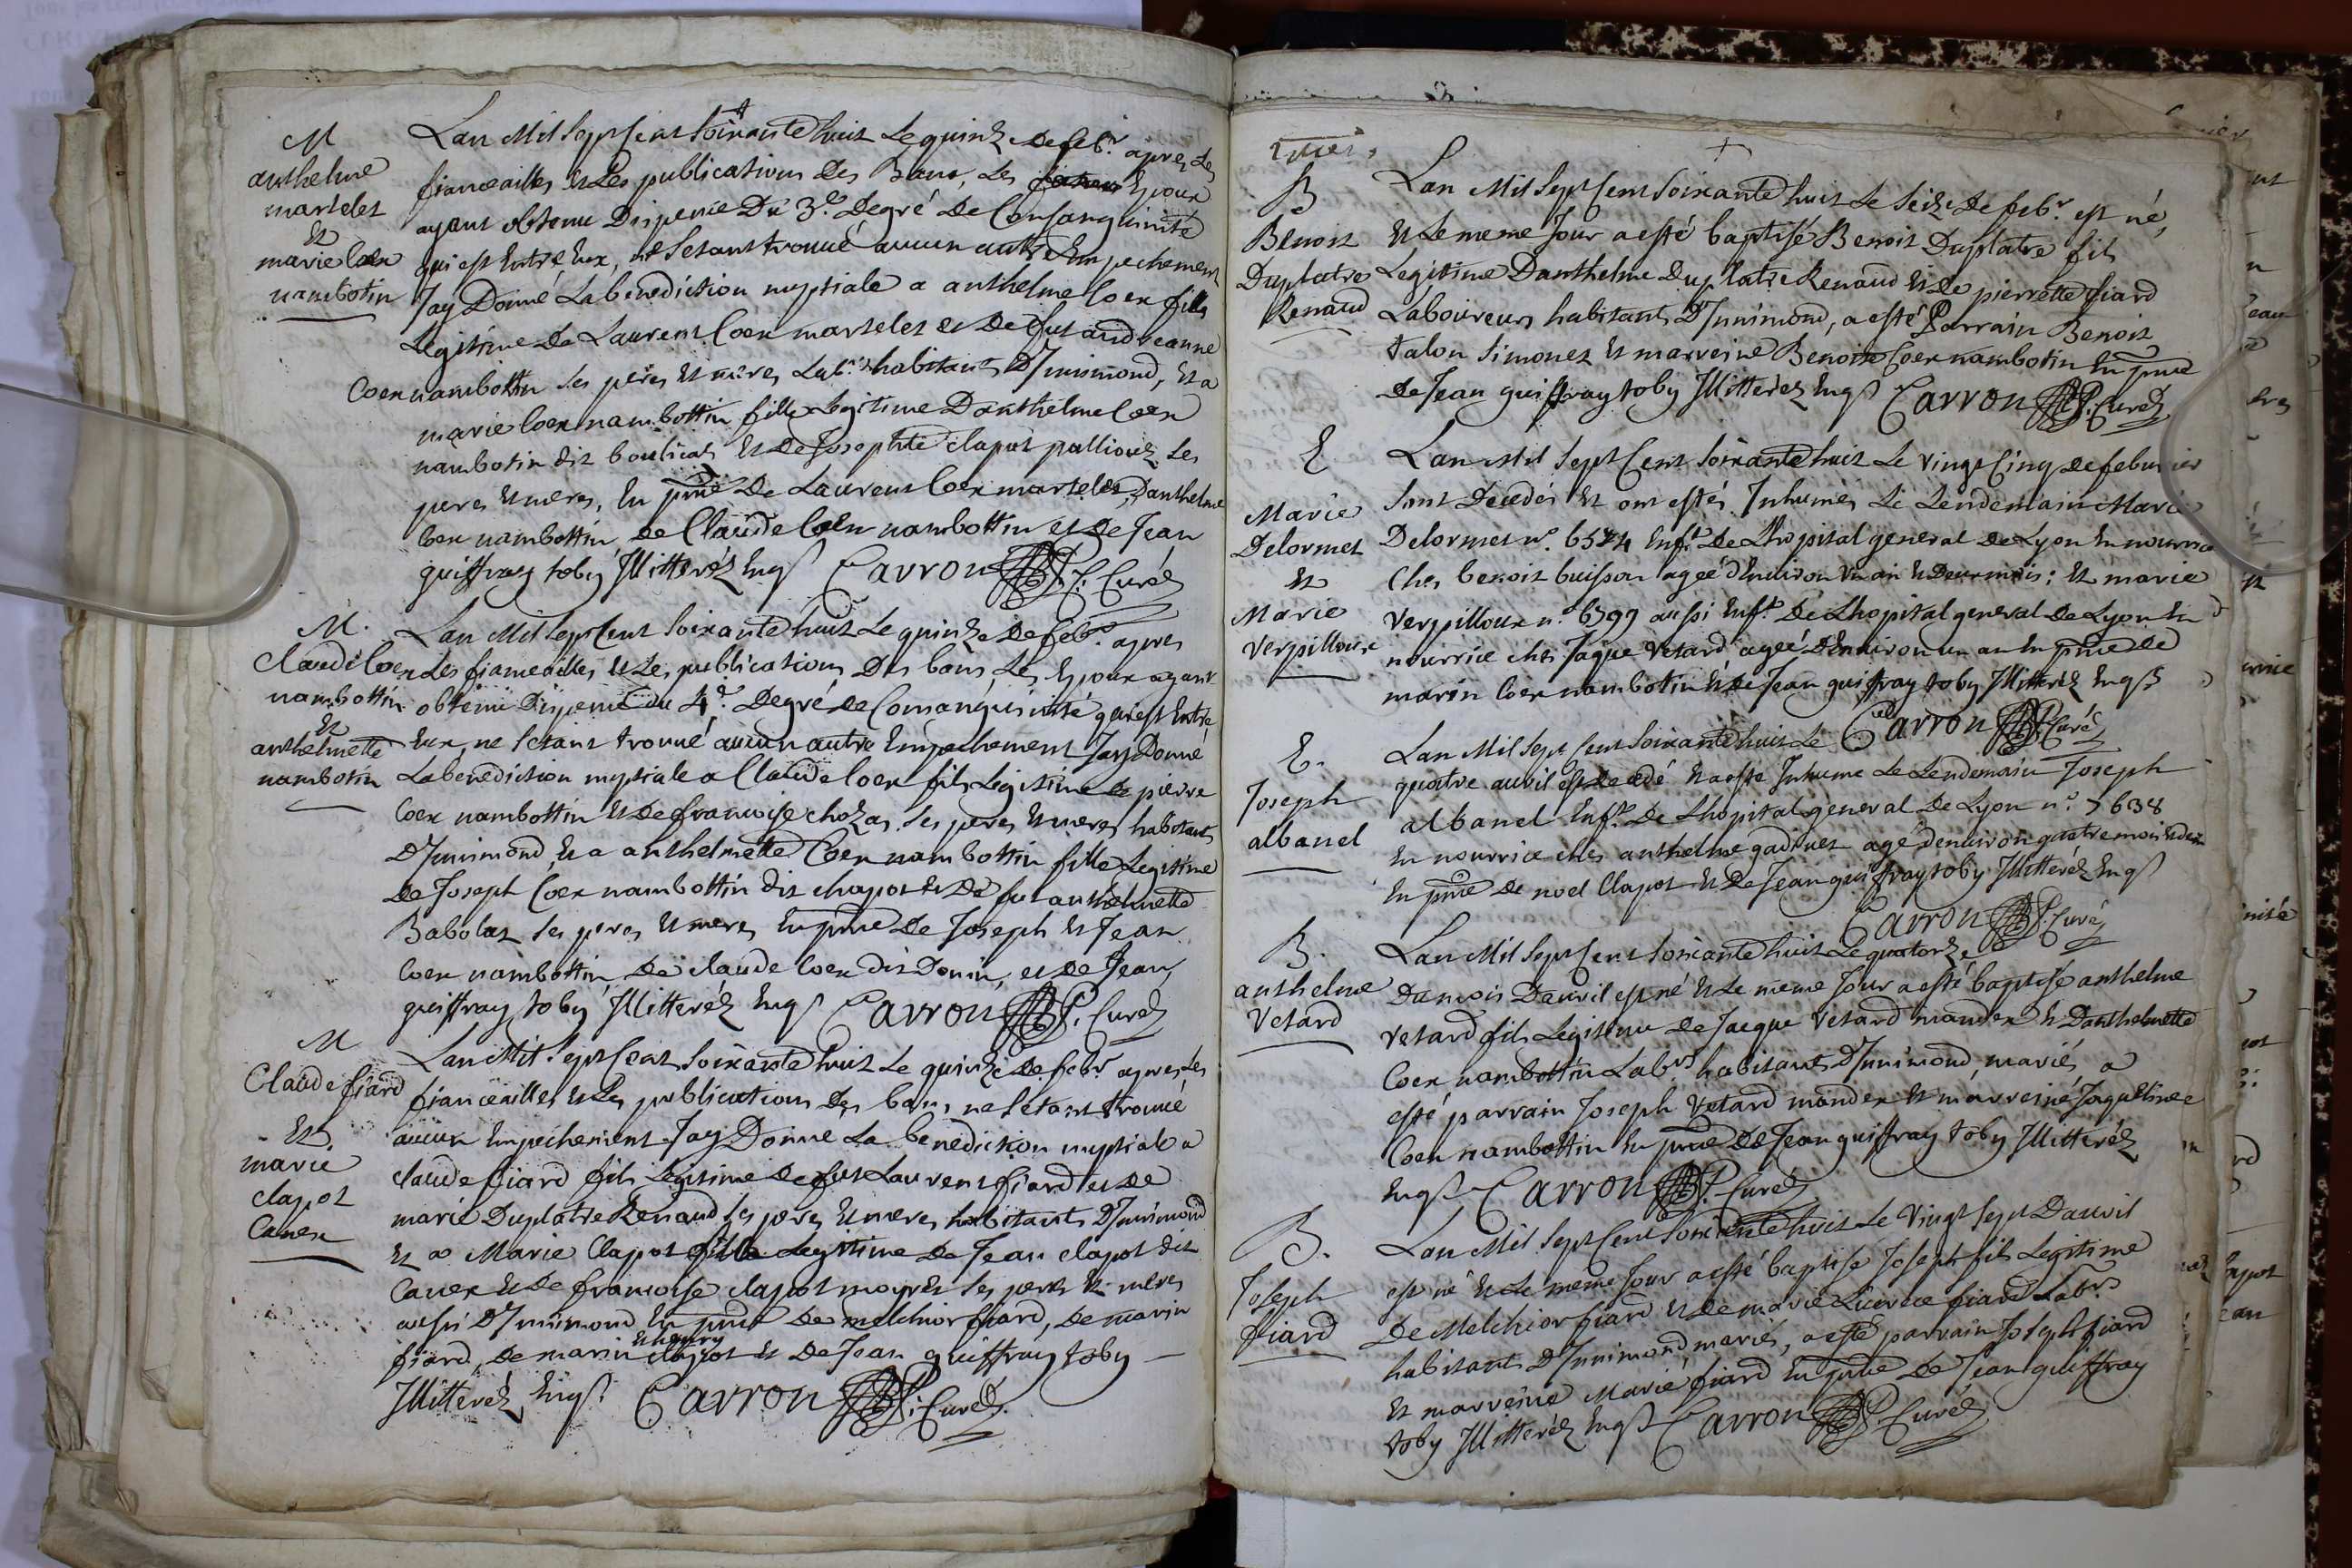 M
anthelme
martelet
et
marie Coex
nambotin
Lan Mil Sept Cent soixante huit Le quinze de febr. apres Les
fiancailles et Les publications Des Bans, Les Epoux
ayant obtenu Dispense Du 3e. Degré De Consanguinité
qui est Entre Eux, ne setant trouvé aucun autre Empechement
Jay Donné La benediction nuptiale a anthelme Coex fils
Legitime De Laurent Coex martelet et De fut Jeanne
Coex nambottin ses peres et meres Lab.rs habitant D'Innimond, et a
marie Coex nambottin fille Legitime D'anthelme Coex
nambotin dit boulicat et de Josephte Clapot palliouz ses
peres et meres, En pnce De Laurent Coex martelet, D'anthelme
Coex nambottin de Claude Coex nambottin et de Jean
guiffray toby Illitteréz Enqs Carron P. Curéz
M.
Claude Coex
nambottin
et
anthelmette
nambotin
Lan Mil Sept Cent soixante huit Le quinze De febr. apres
Les fiancailles et Les publications Des bans, Les Epoux ayant
obtenu Dispense du 4e. Degré de Consanguinité qui est Entre
Eux, ne setant trouvé aucun autre Empechement Jay Donné
La benediction nuptiale a Claude Coex fils Legitime de pierre
Coex nambottin et De francoise chozas ses peres et meres habitants
D'Innimond et a anthelmette Coex nambottin fille Legitime
de Joseph Coex nambottin dit chapot et De fut anthelmette
Babolat ses peres et meres En pnce De Joseph et Jean
Coex nambottin, De claude Coex dit Donin, et De Jean
guiffray toby Illitteréz Enqs Carron P. Curéz
M
Claude fiard
Et
marie
clapot
Canex
Lan Mil Sept Cent Soixante huit Le quinze De febr. apres Les
fiancailles et Les publications Des bans, ne setant trouvé
aucun Empechement Jay Donne La benediction nuptiale a
claude fiard fils Legitime de fut Laurent fiard et de
marie Duplatre Renaud ses peres et meres habitants D'Innimond
Et a Marie Clapot fille Legitime De Jean clapot dit
Canex et De francoise clapot moyret ses peres et meres
aussi D'Innimond En pnce De melchior fiard, De marin
fiard, De marin clapot et De Jean guiffray toby
Illitteréz Enqs Carron P. Curéz
B
Benoit
Duplatre
Renaud
Lan Mil Sept Cent soixante huit Le Seize De febr. est né,
Et Le meme Jour a esté baptisé Benoit Duplatre fils
Legitime D'anthelme Duplatre Renaud et De pierrette fiard
Laboureurs habitants D'Innimond, a esté Parrain Benoit
talon simonet et marreine Benoite Coex nambotin En pnce
de Jean guiffray toby Illitteréz Enqs Carron P. Curéz
E
Marie
Delormet
Et
Marie
Verpilloux
Lan Mil Sept Cent soixante huit Le vingt Cinq de feburier
sont Decedés et ont estés Inhumés Le Lendemain Marie
Delormet n°. 6574 Enft. De L'hopital general de Lyon En nourrice
Chez benoit buisson agée d'Environ un an et Deux mois; Et marie
verpilloux n°. 6399 aussi Enft. De L'hopital general de Lyon En
nourrice chez Jaque Vetard agée D'Environ un an En pnce de
marin Coex nambotin et de Jean guiffray toby Illitteréz Enqs
Carron P. Curéz
E.
Joseph
albanel
Lan Mil Sept Cent soixante huit Le
quatre avril est decedé et a esté Inhumé Le Lendemain Joseph
albanel Enft. De L'hopital general De Lyon n°. 7638
En nourrice chez anthelme gadinet agé d'environ quatre mois
En pnce De noel Clapot et De Jean guiffray toby Illitteréz Enqs
Carron P. Curéz
B.
anthelme
Vetard
Lan Mil Sept Cent soixante huit Le quatorze
Du mois D'auril est né et Le meme Jour a esté baptisé anthelme
vetard fils Legitime De Jacque Vetard mandex et D'anthelmette
Coex nambottin Lab.rs habitants D'Innimond, mariés, a
esté parrain Joseph Vetard mandex et marreine Jaquelinee
Coex nambottin En pnce de Jean guiffray toby Illitteréz
Enqs Carron P. Curéz
B.
Joseph
fiard
Lan Mil Sept Cent soixante huit Le Vingt Sept D'auril
est né et Le même Jour a esté baptisé Joseph fils Legitime
De Melchior fiard et de marie fiard Lab.rs
habitants D'Innimond mariés, a esté parrain Joseph fiard
Et marreine Marie fiard En pnce de Jean guiffray
toby Illitteréz Enqs Carron P. Curéz